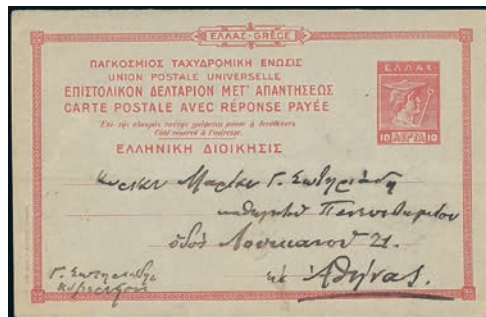 ΕΛΛΑΣ-GRÈCE
ΠΑΓΚΟΣΜΙΟΣ ΤΑΧΥΔΡΟΜΙΚΗ ΕΝΩΣΙΣ
UNION POSTALE UNIVERSELLE
ΕΠΙΣΤΟΛΙΚΟΝ ΔΕΛΤΑΡΙΟΝ ΜΕΤ' ΑΠΑΝΤΗΣΕΩΣ
CARTE POSTALE AVEC RÉPONSE PAYÉE
Ἐπὶ τῆς πλευρᾶς ταύτης γράφεται μόνον ἡ διεύθυνσις
Côté réservé à l'adresse.
ΕΛΛΗΝΙΚΗ ΔΙΟΙΚΗΣΙΣ
ΕΛΛΑΣ
10 ΛΕΠΤΑ 10
Γ. Σωτηριάδη
ὁδὸς Λουκιανοῦ 21.
Ἀθήνας.
Γ. Σωτηριάδης